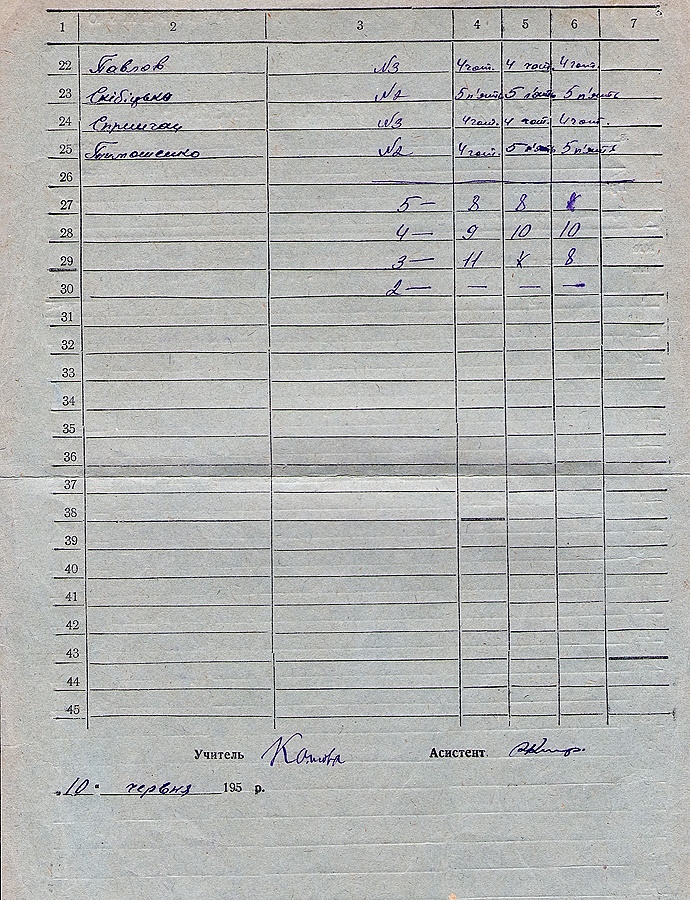 1 2 3 4 5 6 7
22 Павлов №3 4 чот. 4 чот. 4 чот.
23 Скібіцька №2 5 п'ять 5 п'ять 5 п'ять
24 №3 4 чот. 4 чот. 4 чот.
25 Тимошенко №2 4 чот. 5 п'ять 5 п'ять
26
27 5 — 8 8
28 4 — 9 10 10
29 3 — 11 8
30 2 — — — —
31
32
33
34
35
36
37
38
39
40
41
42
43
44
45
Учитель Асистент
„10" червня 195 р.